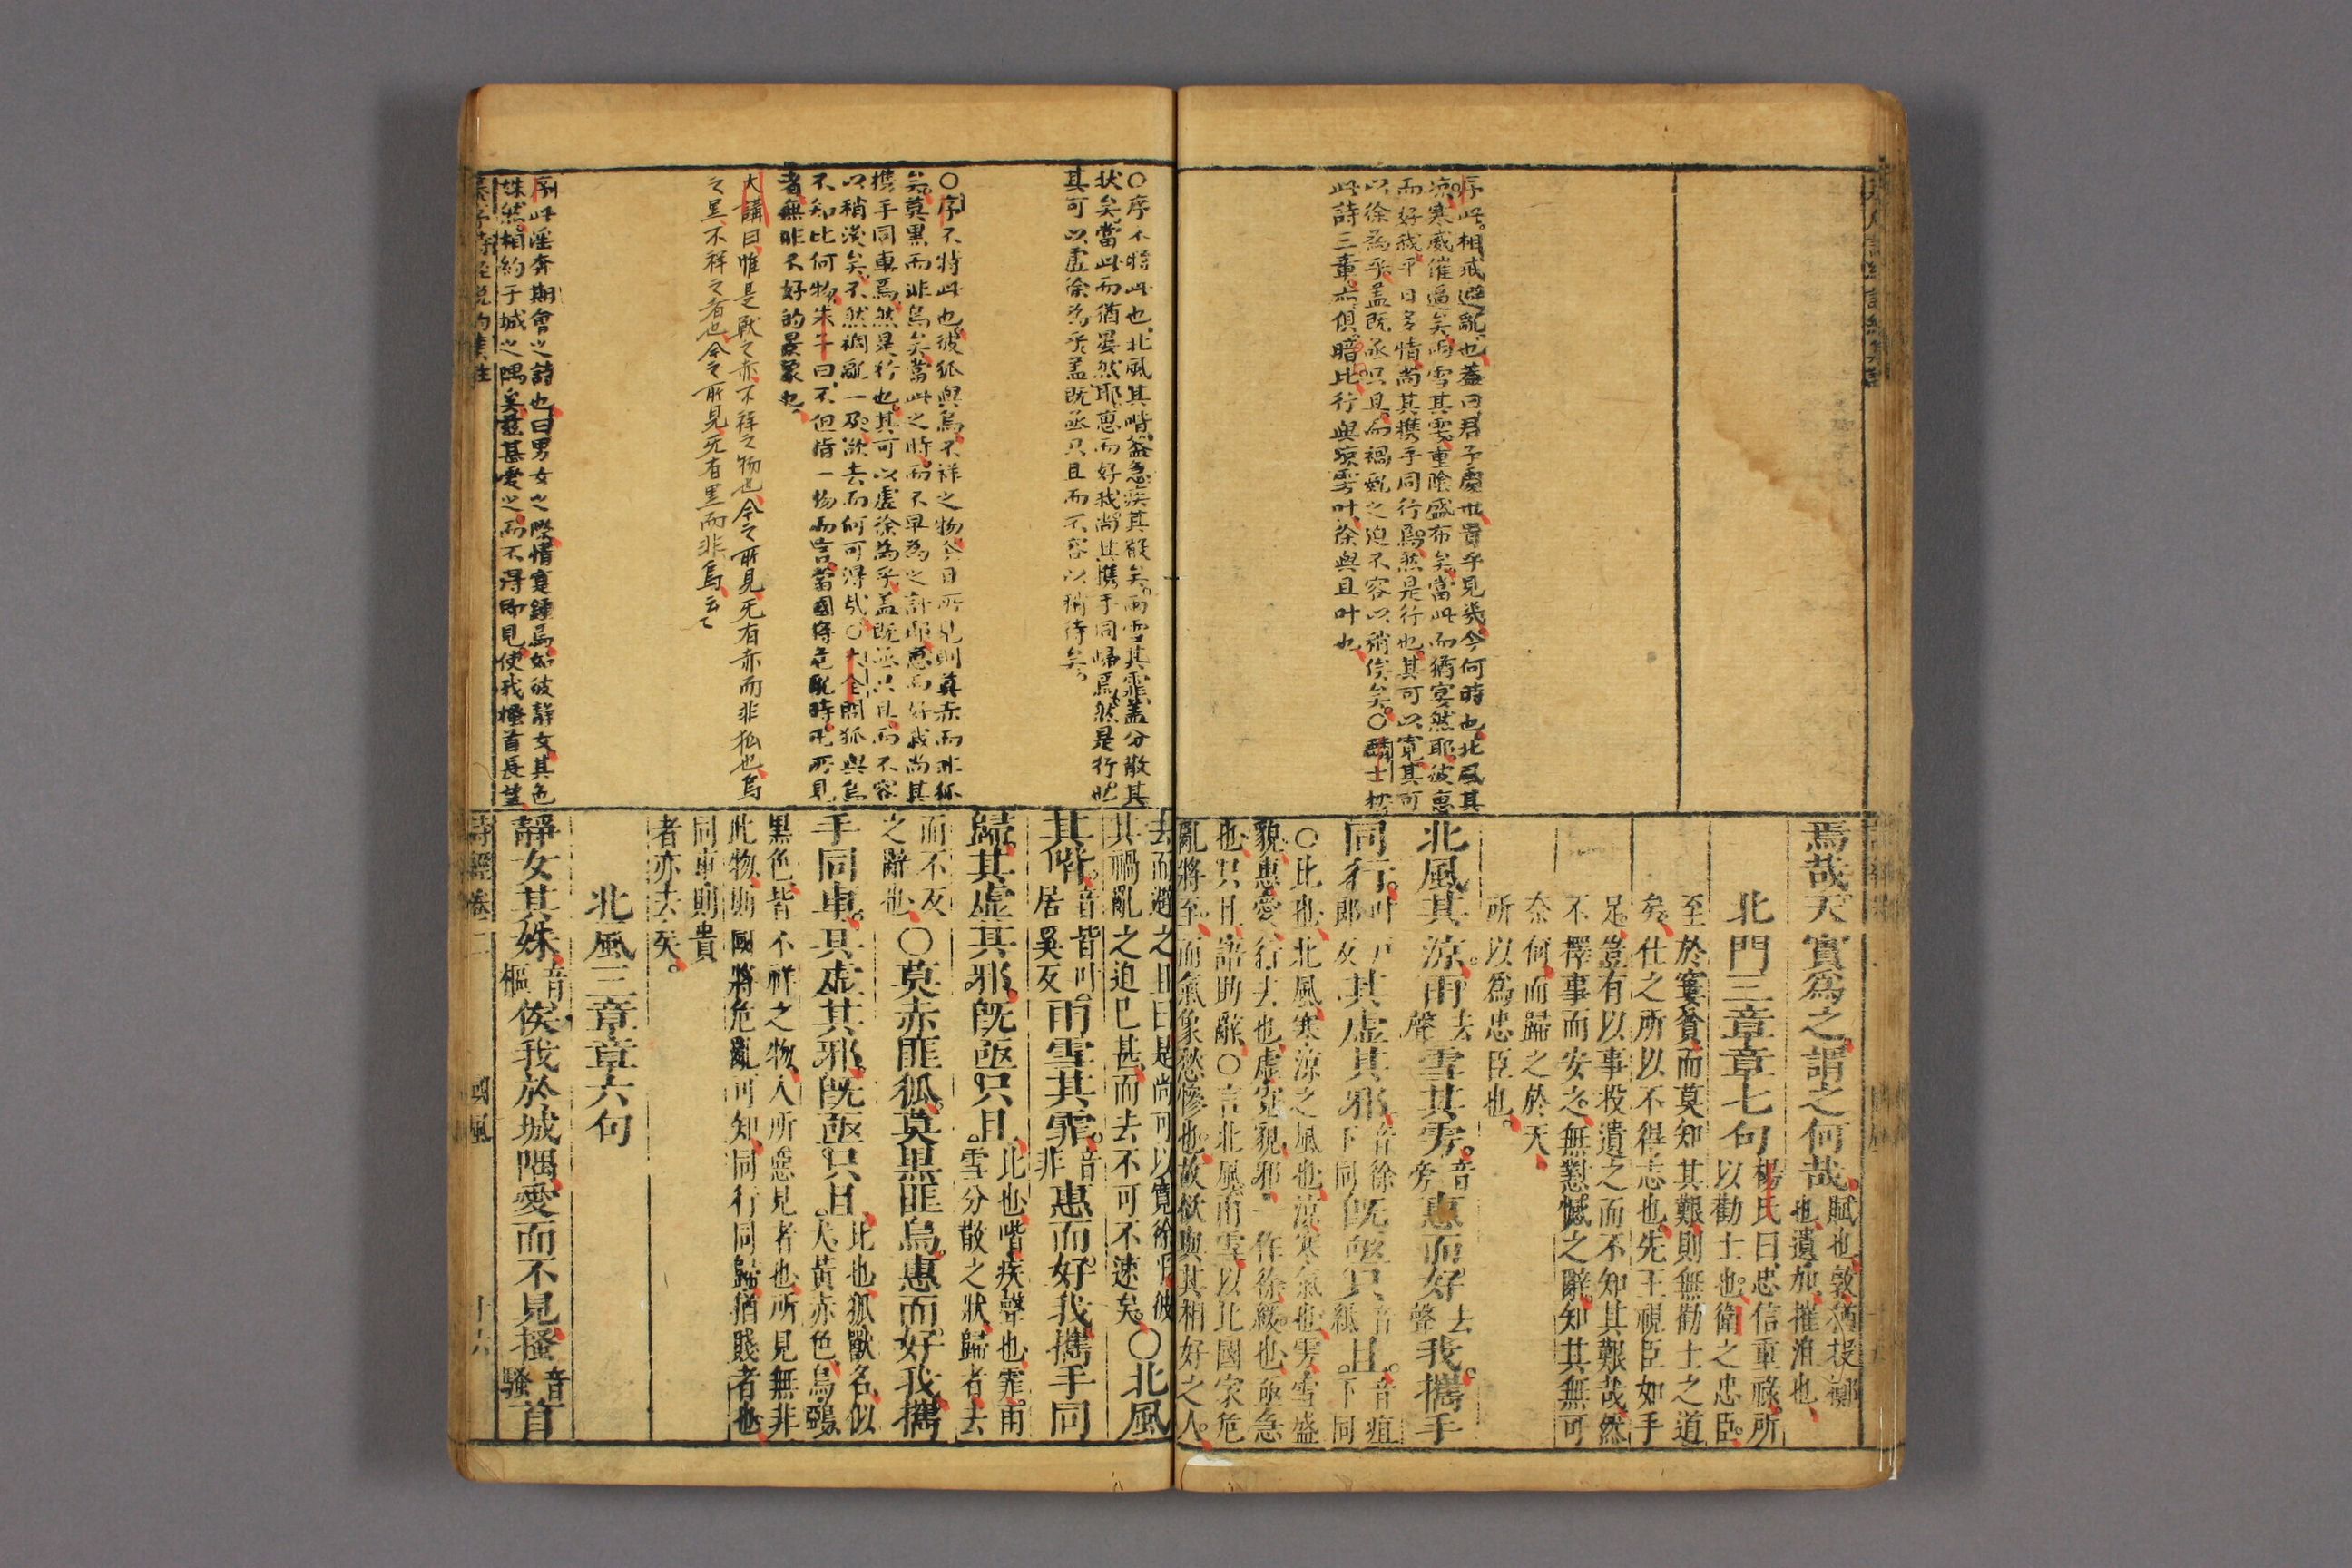 序此。相戒避亂也、蓋曰君子處世貴乎見幾、今何時也、北風其
凉寒威催逼矣、雨雪其雱、重陰盛布矣、當此而猶冥然耶、彼惠
而好我平日多情、尚其携手同行焉、然是行也、其可以寬其可
以徐爲乎、盖既亟只且、而禍亂之迫不容以稍俟矣。○
此詩三章、亦俱暗比、行與凉雱叶、徐與且叶也、
焉哉天實爲之謂之何哉賦也、敦猶投擲
也、遺加、摧沮也、
北門三章章七句楊氏曰、忠信重祿、所
以勸士也、衛之忠臣。
至於窶貧而莫知其艱、則無勸士之道
矣、仕之所以不得志也、先王視臣如手
足、豈有以事投遺之而不知其艱哉、然
不擇事而安之、無懟憾之辭、知其無可
奈何而歸之於天、
所以爲忠臣也。
北風其涼。雨去聲雪其雱。音旁惠而好去聲我。攜手
同行。叶戶郎反其虛其邪音徐下同旣亟只音紙且。音疽下同
○比也、北風、寒涼之風也、涼寒氣也、雱、雪盛
貌、惠愛、行去也、虛寬貌、邪、一作徐、緩也、亟急
也、只且、語助辭、○言北風雨雪、以比國家危
亂將至、而氣象愁慘也、故欲與其相好之人。
○序不特此也、北風其喈、益急疾其聲矣。雨雪其霏、盖分散其
状矣、當此而猶晏然耶、惠而好我、尚其携手同歸焉、然是行也
其可以虛徐爲乎、盖既亟只且而不容以稍待矣。
○序不特此也、彼狐與烏、不祥之物、今日所見則莫赤而非狐
矣、莫黑而非烏矣、當此之時、而不早爲之計耶、惠而好我尚其
携手同車焉、然是行也。其可以虛徐爲乎、盖既亟只且、而不容
以稍淡矣、不然禍亂一及、欲去而何可得哉、○大全問狐與烏
不知比何物、朱子曰、不但指一物而言、當國將危亂時。凡所見
者無非不好的景象也、
大講曰惟是獸之赤不祥之物也、今之所見、无有赤而非狐也、烏
之黑不祥之者也、今之所見、无有黑而非烏、云々
序此淫奔期會之詩也、曰男女之際、情寔鍾焉、如彼靜女其色
姝然、相約于城之隅矣、茲甚愛之、而不得即見、使我搔首長望
去而避之、且曰是尚可以寬徐乎、彼
其禍亂之迫已甚、而去不可不速矣。○北風
其喈。音皆叶居奚反雨雪其霏。音非惠而好我攜手同
歸。其虛其邪旣亟只且、比也、喈疾聲也、霏、雨
雪分散之狀、歸者、去
而不反
之辭也、○莫赤匪狐。莫黑匪烏、惠而好我攜
手同車。其虛其邪旣亟只且、比也、狐、獸名、似
犬、黃赤色、烏、鵶、
黑色、皆不祥之物、人所惡見者也、所見無非
此物、則國將危亂可知、同行同歸、猶賤者也
同車、則貴
者亦去矣。
北風三章章六句
靜女其姝、音樞俟我於城隅、愛而不見搔音騷首
詩經卷二 國風 十六